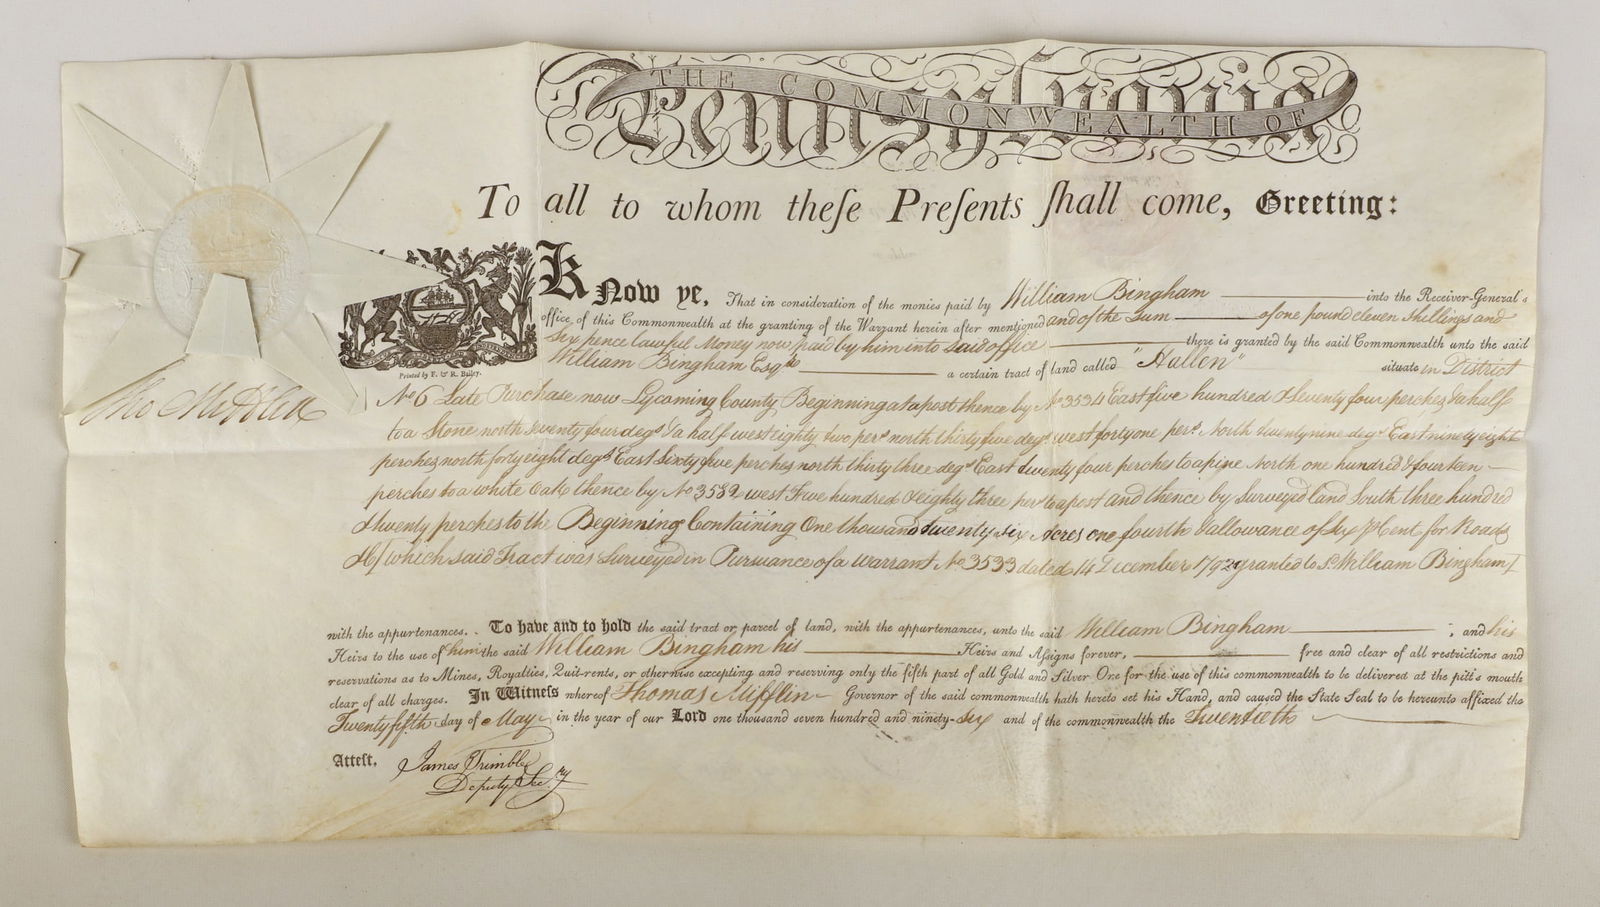 THE COMMONWEALTH OF
Pennsylvania
To all to whom theſe Preſents ſhall come, Greeting:
Know ye, That in consideration of the monies paid by William Bingham into the Receiver-General's
office of this Commonwealth at the granting of the Warrant herein after mentioned and of the Sum of one pound eleven shillings and
Six pence lawful Money now paid by him into said office there is granted by the said Commonwealth unto the said
William Bingham Esqr. a certain tract of land called "Hallen" situate in District
Printed by F. & R. Bailey.
Tho Mifflin
No 6 Late Purchase now Lycoming County Beginning at a post thence by No 3534 East five hundred & Seventy four perches & a half
to a Stone north seventy four degs. & a half west eighty two pers. north thirty five degs. west forty one pers. North twenty nine degs. East ninety eight
perches north forty eight degs. East Sixty five perches north thirty three degs. East twenty four perches to a pine North one hundred & fourteen
perches to a white Oak thence by No 3582 west Five hundred & eighty three pers. to a post and thence by Surveyed land South three hundred
& twenty perches to the Beginning Containing One thousand twenty six Acres one fourth & allowance of Six p Cent for Roads
&c [which said Tract was Surveyed in Pursuance of a Warrant No 3533 dated 14 December 1792 granted to sd. William Bingham]
with the appurtenances. To have and to hold the said tract or parcel of land, with the appurtenances, unto the said William Bingham, and his
Heirs to the use of him the said William Bingham his Heirs and Aſsigns forever, free and clear of all restrictions and
reservations as to Mines, Royalties, Quit-rents, or otherwise excepting and reserving only the fifth part of all Gold and Silver Ore for the use of this commonwealth to be delivered at the pitt's mouth
clear of all charges. In Witneſs whereof Thomas Mifflin Governor of the said commonwealth hath hereto set his Hand, and caused the State Seal to be hereunto affixed the
Twenty fifth day of May in the year of our Lord one thousand seven hundred and ninety-six and of the commonwealth the Twentieth
Atteſt.
James Trimble
Deputy Secry